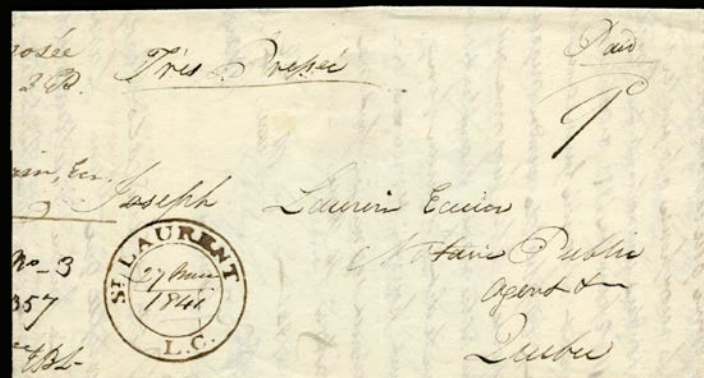 osée
2 B.
Très Pressée
Paid
9
rin, Ecr.
Joseph Laurin Ecuier
Notaire Public
Agent &c
Quebec
No - 3
357
EBL
ST LAURENT
27
1841
L.C.